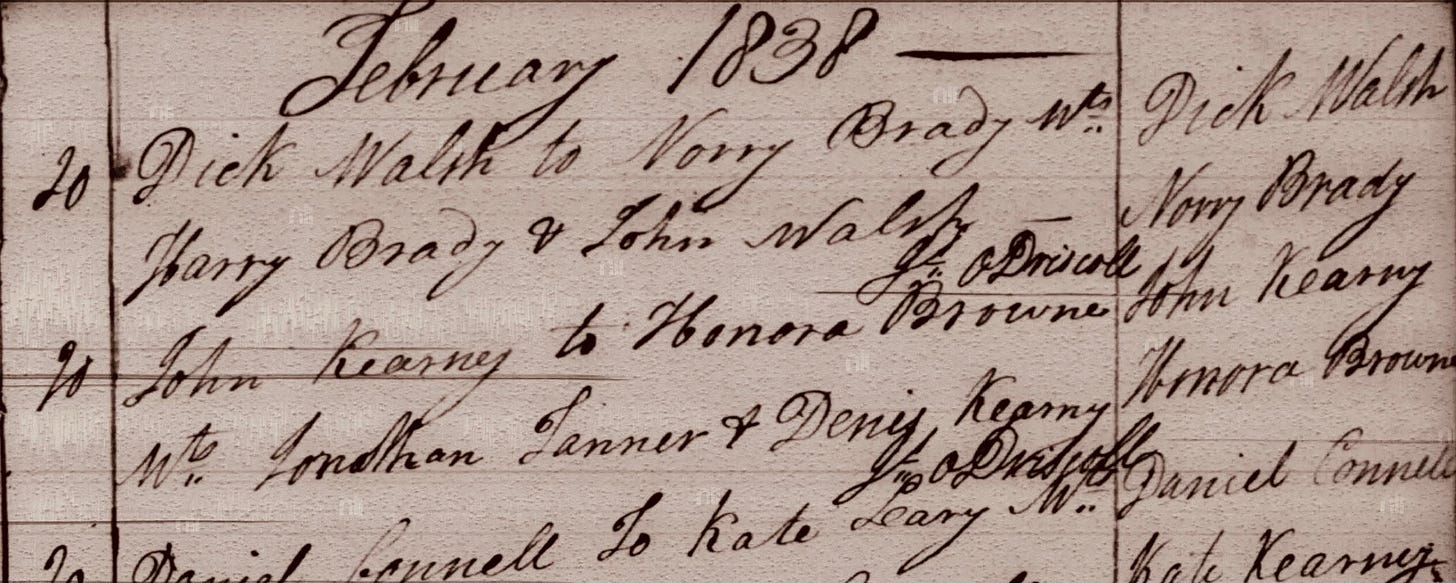 February 1838
20 Dick Walsh to Norry Brady Wts
Harry Brady & John Walsh
Jn O Driscoll
20 John Kearney to Honora Browne
Wts Jonathan Tanner & Denis Kearny
Jn O Driscoll
20 Daniel Connell To Kate Leary Wts
Dick Walsh
Norry Brady
John Kearny
Honora Browne
Daniel Connell
Kate Kearney